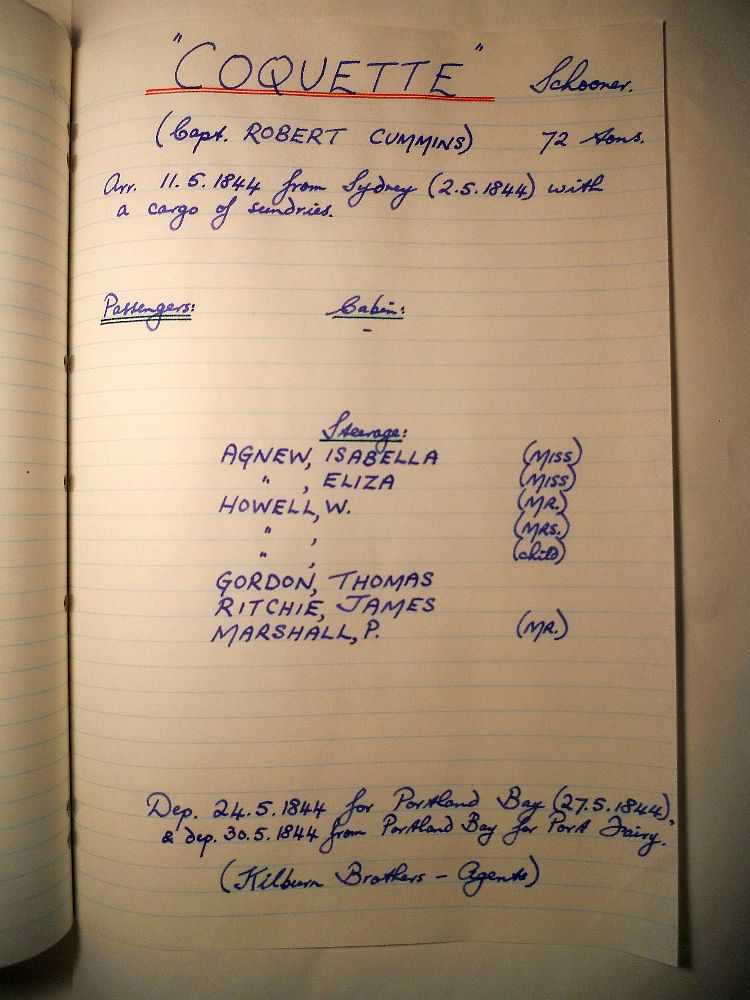 "COQUETTE" Schooner.
(Capt. ROBERT CUMMINS) 72 tons.
Arr. 11.5.1844 from Sydney (2.5.1844) with
a cargo of sundries.
Passengers: Cabin:
-
Steerage:
AGNEW, ISABELLA (MISS)
" , ELIZA (MISS)
HOWELL, W. (MR.)
" , (MRS.)
" , (child)
GORDON, THOMAS
RITCHIE, JAMES
MARSHALL, P. (MR.)
Dep. 24.5.1844 for Portland Bay (27.5.1844),
& dep. 30.5.1844 from Portland Bay for Port Fairy.
(Kilburn Brothers - Agents)